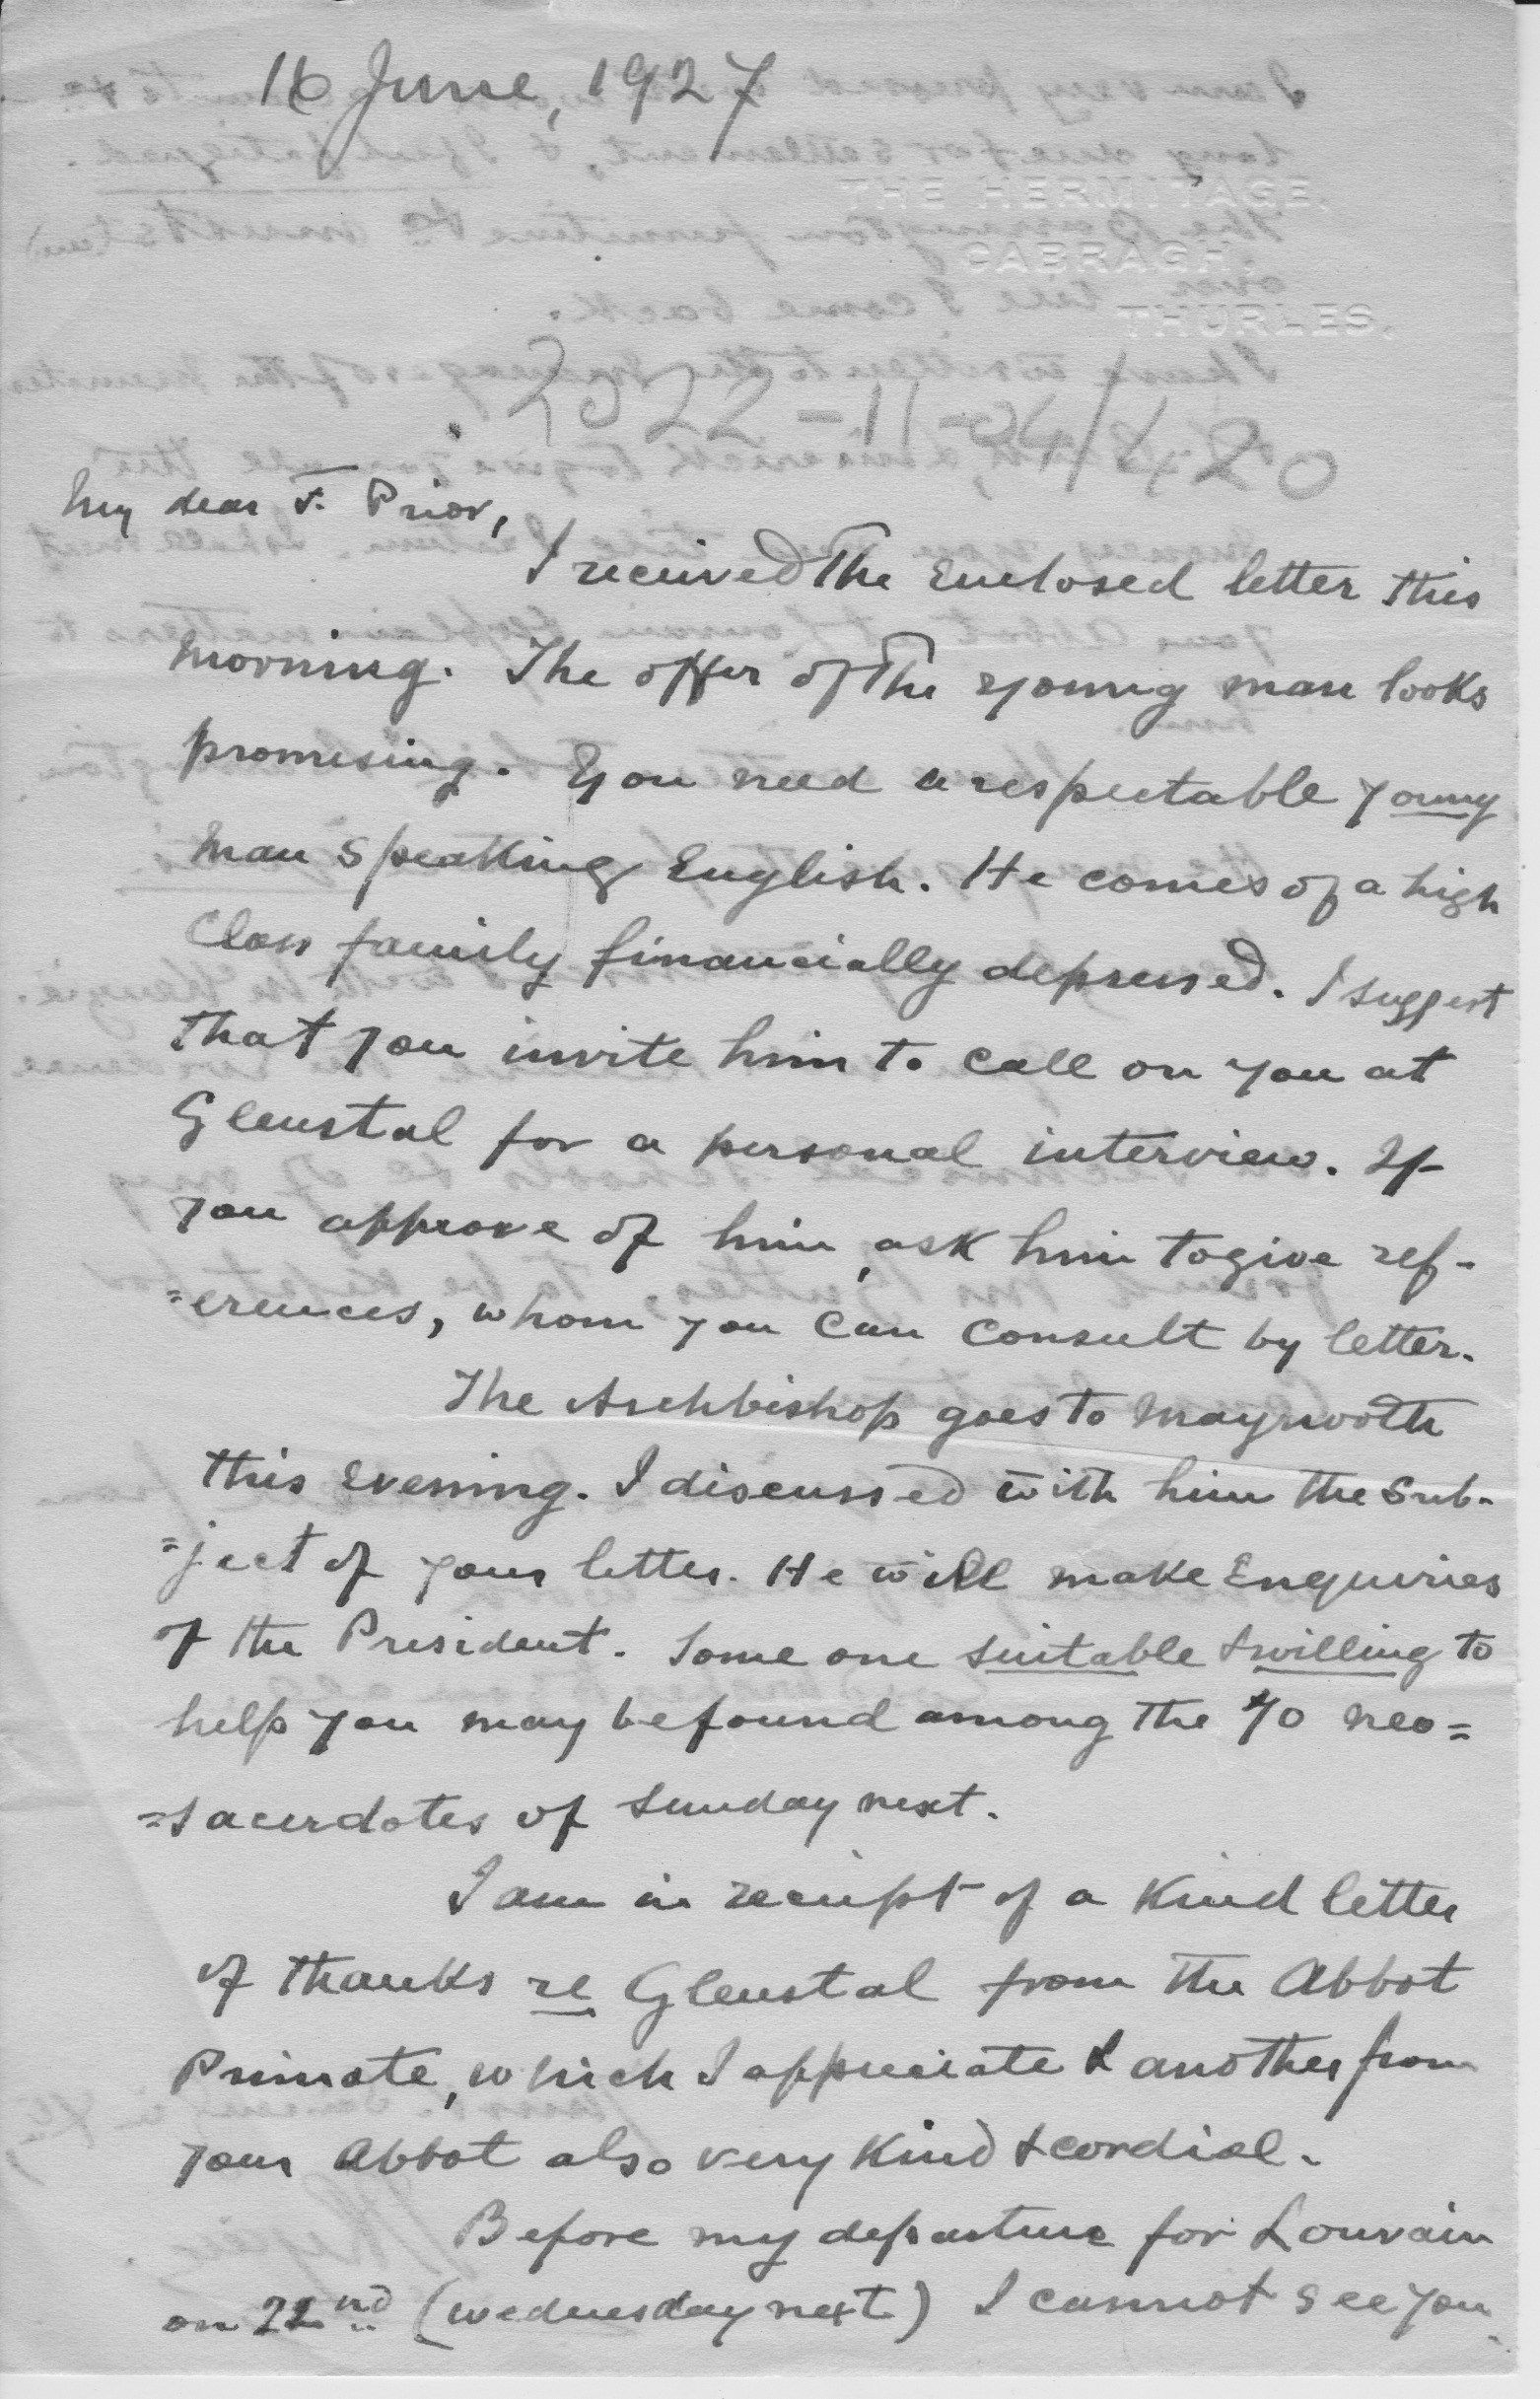 16 June, 1927
THE HERMITAGE,
CABRAGH,
THURLES.
2022-11-04/420
My dear F. Prior,
I received the enclosed letter this
morning. The offer of the young man looks
promising. You need a respectable young
man speaking English. He comes of a high
class family financially depressed. I suggest
that you invite him to call on you at
Glenstal for a personal interview. If
you approve of him, ask him to give ref-
=erences, whom you can consult by letter.
The Archbishop goes to Maynooth
this evening. I discussed with him the sub-
=ject of your letter. He will make enquiries
of the President. Some one suitable & willing to
help you may be found among the 70 neo=
=sacerdotes of Sunday next.
I am in receipt of a kind letter
of thanks re Glenstal from the Abbot
Primate, which I appreciate & another from
your Abbot also very kind & cordial.
Before my departure for Louvain
on 22nd (Wednesday next) I cannot see you